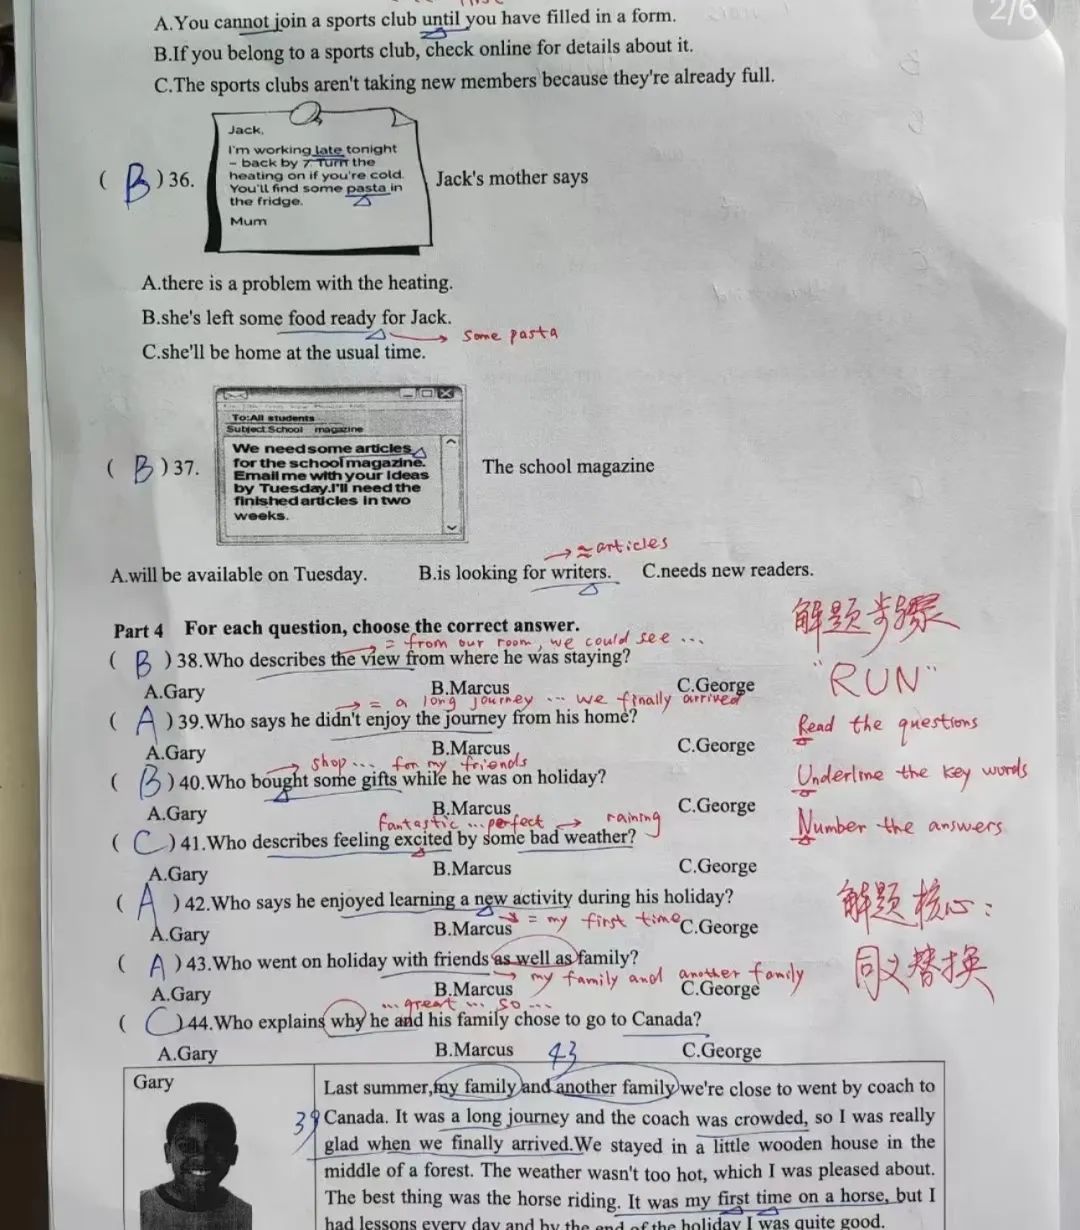 2/6
A.You cannot join a sports club until you have filled in a form.
B.If you belong to a sports club, check online for details about it.
C.The sports clubs aren't taking new members because they're already full.
Jack,
I'm working late tonight
– back by 7. Turn the
heating on if you're cold.
You'll find some pasta in
the fridge.
Mum
( B ) 36.
Jack's mother says
A.there is a problem with the heating.
B.she's left some food ready for Jack.
some pasta
C.she'll be home at the usual time.
To:All students
Subject:School magazine
We need some articles
for the school magazine.
Email me with your ideas
by Tuesday.I'll need the
finished articles in two
weeks.
( B ) 37.
The school magazine
≈ articles
A.will be available on Tuesday. B.is looking for writers. C.needs new readers.
解题步骤
Part 4 For each question, choose the correct answer.
= from our room, we could see ...
( B ) 38.Who describes the view from where he was staying?
"RUN"
A.Gary B.Marcus C.George
= a long journey ... we finally arrived
( A ) 39.Who says he didn't enjoy the journey from his home?
Read the questions
A.Gary B.Marcus C.George
shop ... for my friends
( B ) 40.Who bought some gifts while he was on holiday?
Underline the key words
A.Gary B.Marcus C.George
fantastic ... perfect → raining
Number the answers
( C ) 41.Who describes feeling excited by some bad weather?
A.Gary B.Marcus C.George
( A ) 42.Who says he enjoyed learning a new activity during his holiday?
解题核心:
= my first time
A.Gary B.Marcus C.George
( A ) 43.Who went on holiday with friends as well as family?
同义替换
my family and another family
A.Gary B.Marcus C.George
... great ... so ...
( C ) 44.Who explains why he and his family chose to go to Canada?
A.Gary B.Marcus C.George
43
Gary
Last summer,my family and another family we're close to went by coach to
39
Canada. It was a long journey and the coach was crowded, so I was really
glad when we finally arrived.We stayed in a little wooden house in the
middle of a forest. The weather wasn't too hot, which I was pleased about.
The best thing was the horse riding. It was my first time on a horse, but I
had lessons every day and by the end of the holiday I was quite good.